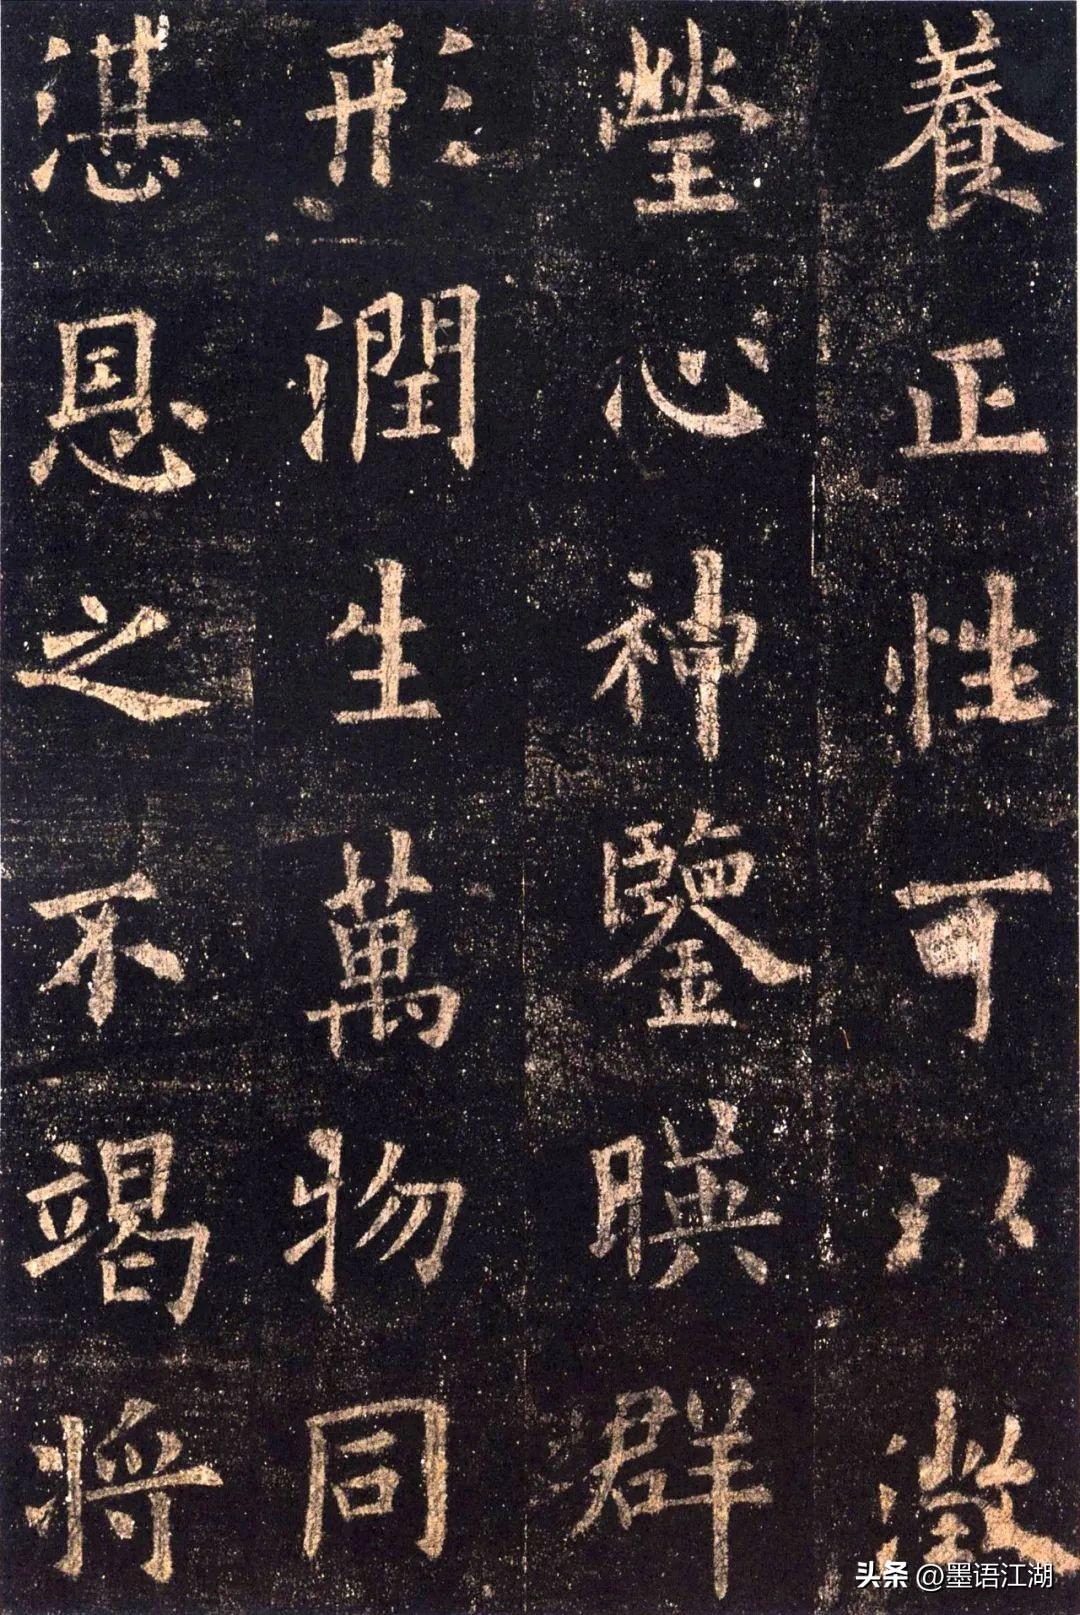 養正性可以澂
瑩心神鑒暎群
形潤生萬物同
湛恩之不竭将
头条 @墨语江湖